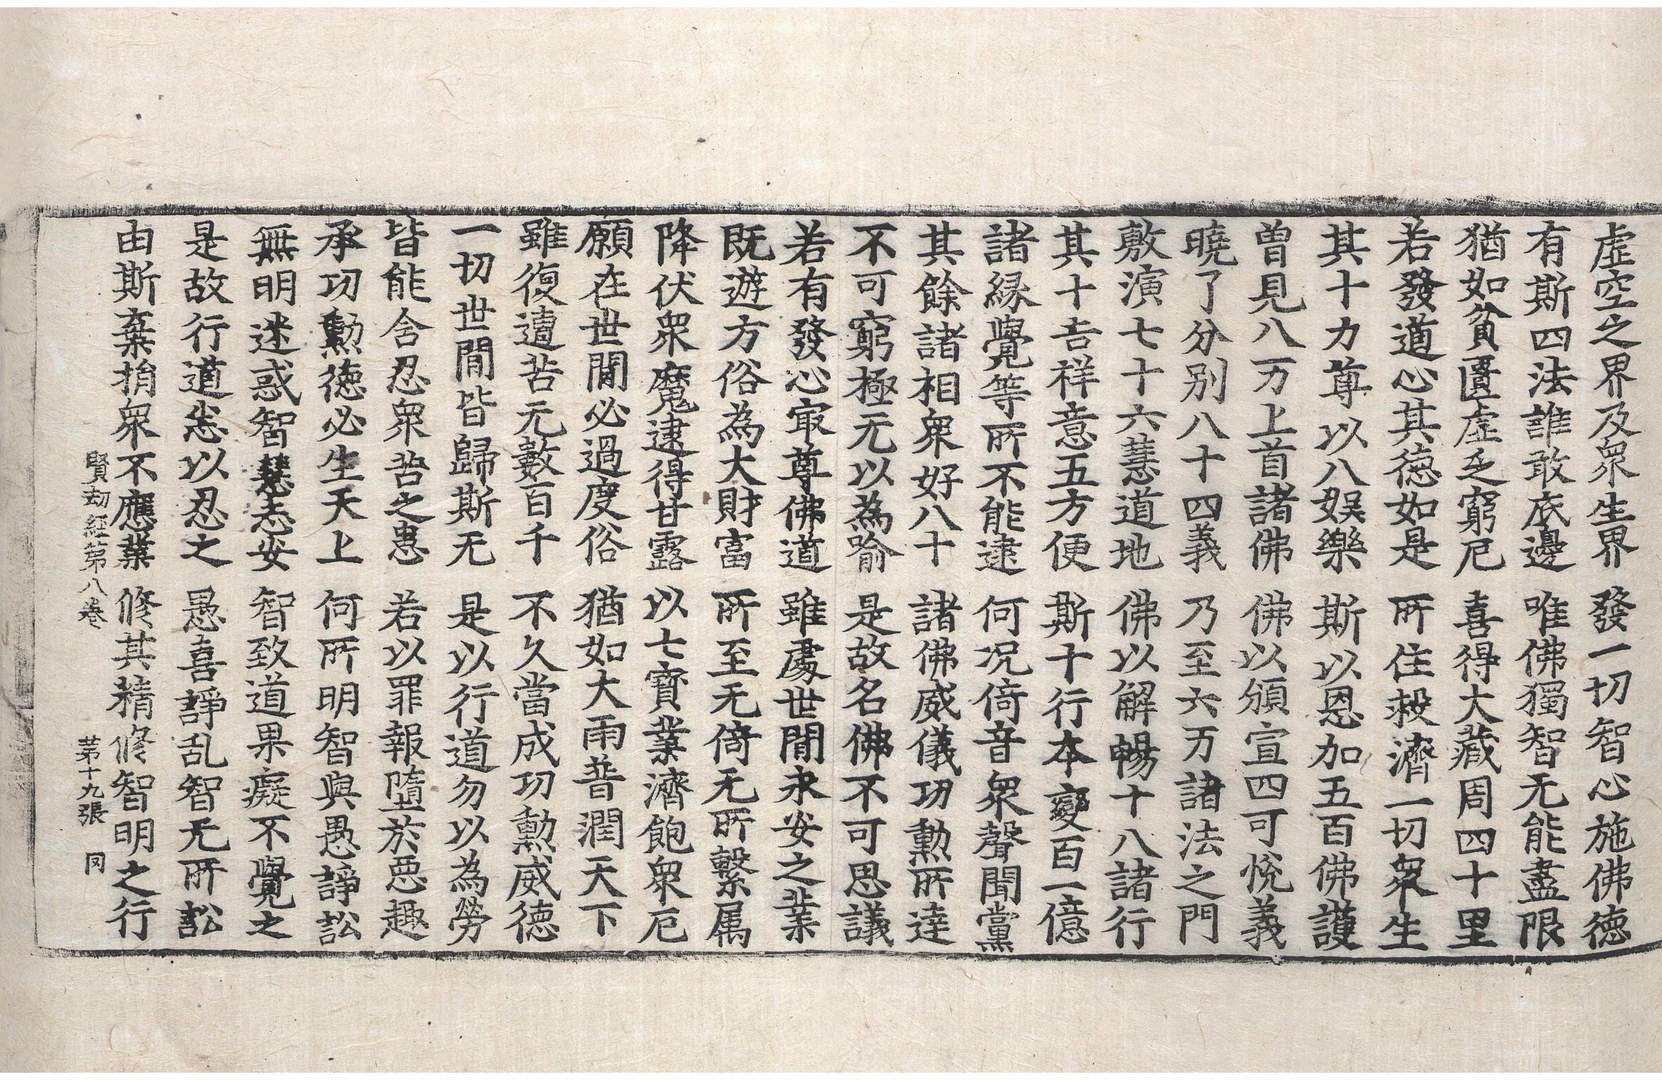 虛空之界及衆生界　發一切智心施佛德
有斯四法誰敢底邊　唯佛獨智无能盡限
猶如貧匱虛乏窮厄　喜得大藏周四十里
若發道心其德如是　所住救濟一切衆生
其十力尊以八娛樂　斯以恩加五百佛護
曽見八万上首諸佛　佛以頒宣四可悅義
曉了分別八十四義　乃至六万諸法之門
敷演七十六慧道地　佛以解暢十八諸行
其十吉祥意五方便　斯十行本變百一億
諸縁覺等所不能逮　何况倚音衆聲聞黨
其餘諸相衆好八十　諸佛威儀功勳所逹
不可窮極无以為喻　是故名佛不可思議
若有發心㝡尊佛道　雖處世閒永安之業
既遊方俗為大財富　所至无倚无所繫属
降伏衆魔逮得甘露　以七寶業濟飽衆厄
願在世閒必過度俗　猶如大雨普潤天下
雖復遭苦无數百千　不久當成功勳威德
一切世閒皆歸斯无　是以行道勿以為勞
皆能舍忍衆苦之患　若以罪報墮於惡趣
承功勳德必生天上　何所明智與愚諍訟
無明迷惑智慧志安　智致道果癡不覺之
是故行道恙以忍之　愚喜諍乱智无所訟
由斯棄捐衆不應業　修其精修智明之行
賢劫經第八卷　第十九張　同